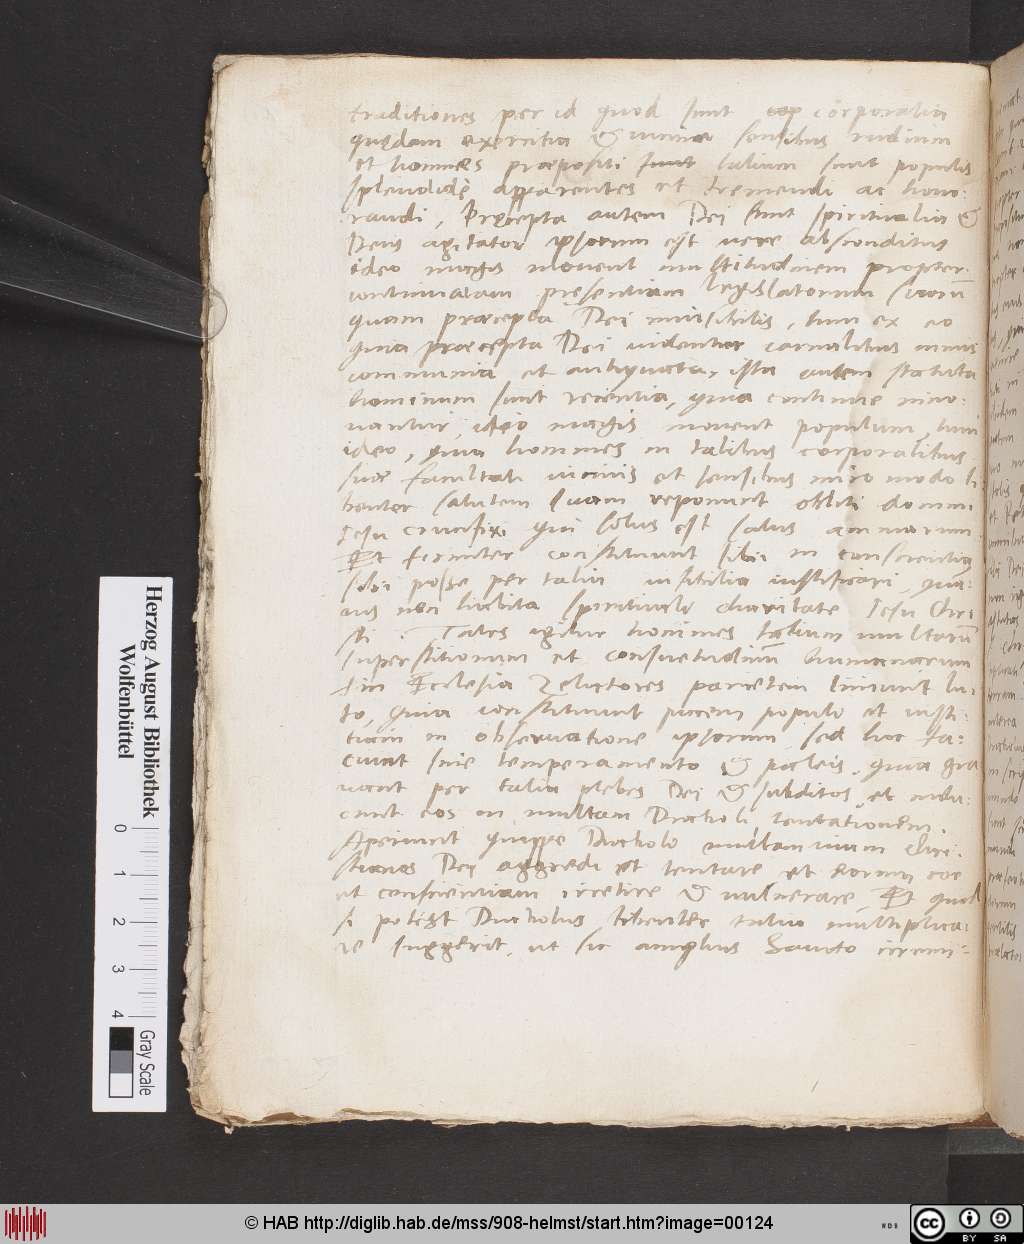 traditiones per id quod sunt corporalia
quędam exercitia & vicina sensibus rudium
et homines præpositi sunt talium sunt populis
splendidè apparentes et tremendi ac hono:
randi, Pręcepta autem Dei sunt spiritualia &
Deus agitator ipsorum est vere absconditus
ideo magis movent multitudinem propter
continuatam presentiam legislatorum suorū
quam præcepta Dei invisibilis, tum ex eo
quia præcepta Dei videntur carnalibus nimis
communia et antiquata, ista autem statuta
hominum sunt recentia, quia continue inno:
vantur, ideo magis movent populum, tum
ideo, quia homines in talibus corporalibus
suæ facultati vicinis et sensibus miro modo li
benter salutem suam reponunt obliti domini
Iesu crucifixi qui solus est salus animarum
Et firmiter constituunt sibi in conscientia
sibi posse per talia justificari, qua:
vis non habita spirituali charitate Iesu Chri
sti. Tales igitur homines talium multarū
superstitionum et consuetudinū humanarum
in Ecclesia Zelatores parietem liniunt lu:
to, quia constituunt pacem populo et justi:
tiam in observatione ipsorum, sed hoc fa:
ciunt sine temperamento & paleis, quia gra
vant per talia plebes Dei & subditos, et indu:
cunt eos in multam Diaboli tentationem.
Aperiunt quippe Diabolo multam viam Chri:
stianos Dei aggredi et tentare et eorum cor
et conscientiam irretire & vulnerare, Et quod
si potest Diabolus libenter talia multiplica:
re suggerit, ut sic amplius
Herzog August Bibliothek
Wolfenbüttel
0 1 2 3 4
Gray Scale
© HAB http://diglib.hab.de/mss/908-helmst/start.htm?image=00124
WDB
cc BY SA